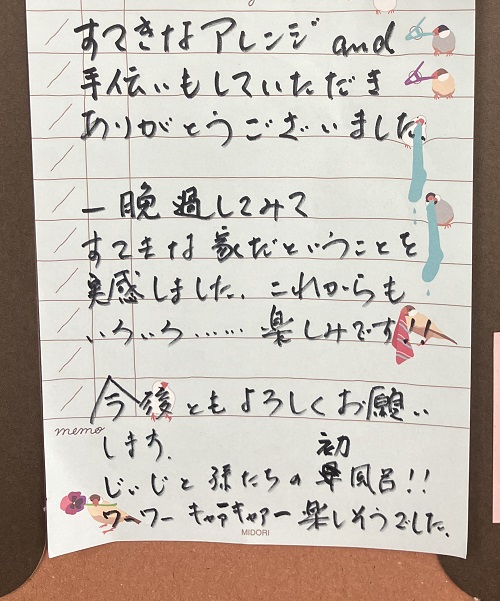 すてきなアレンジ and
手伝いもしていただき
ありがとうございました。
一晩過してみて
すてきな家だということを
実感しました。これからも
いろいろ…… 楽しみです!!
今後ともよろしくお願い
memo
します。
初
じぃじと孫たちの 風呂!!
ワーワーキャアキャアー楽しそうでした。
MIDORI